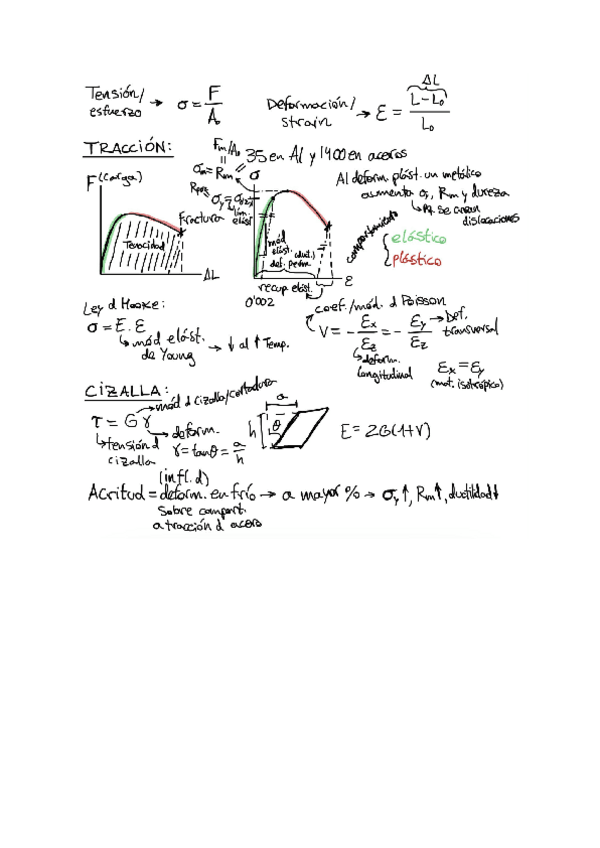 Tensión/
esfuerzo → σ = F/A₀
Deformación/
strain → ε = (L - L₀)/L₀
ΔL
TRACCIÓN:
Fm/A₀ 35 en Al y 1400 en aceros
σm = Rm
σ
F (carga)
Fractura
Tenacidad
ΔL
lím.
elást.
mód
elást. (duct.)
def. perm.
recup. elást.
ε
0'002
Al deform. plást. un metálico
aumenta σy, Rm y dureza
↳ Pq. se crean
dislocaciones
comportamiento
elástico
plástico
Ley d Hooke:
σ = E · ε
↳ mód elást. → ↓ al ↑ Temp.
de Young
coef./mód. d Poisson
ν = - εx/εz = - εy/εz → Def. transversal
↳ deform.
longitudinal
εx = εy
(mat. isotrópico)
CIZALLA:
mód d cizalla/cortadura
τ = G γ
↳ tensión d
cizalla
→ deform.
γ = tanθ = a/h
a
h
θ
E = 2G(1+ν)
(infl. d)
Acritud = deform. en frío → a mayor % → σy ↑, Rm ↑, ductilidad ↓
sobre comport.
a tracción d acero